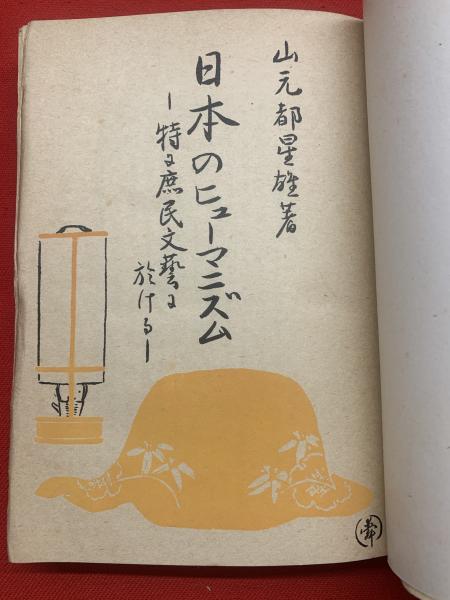 山元都星雄著
日本のヒューマニズム
ー特に庶民文藝に
於けるー